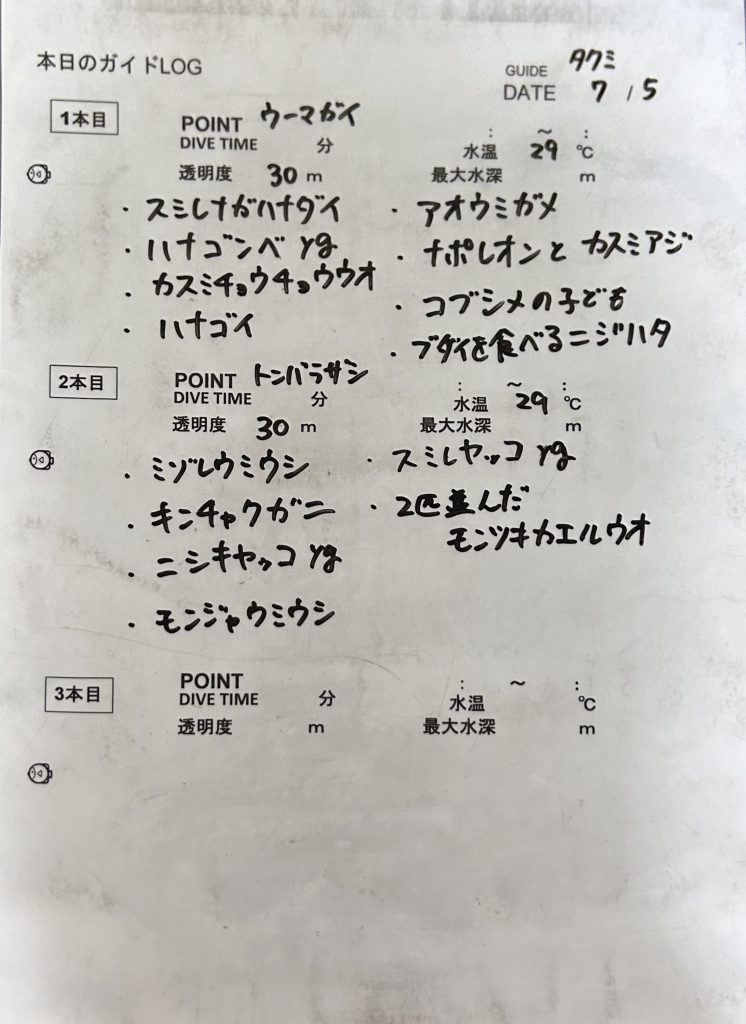 本日のガイドLOG
GUIDE タクミ
DATE 7 / 5
1本目
POINT ウーマガイ
DIVE TIME 分 : ~ :
透明度 30 m 水温 29 ℃
最大水深 m
・スミレナガハナダイ
・ハナゴンベ yg
・カスミチョウチョウウオ
・ハナゴイ
・アオウミガメ
・ナポレオンと カスミアジ
・コブシメの子ども
・ブダイを食べるニジハタ
2本目
POINT トンバラザシ
DIVE TIME 分 : ~ :
透明度 30 m 水温 29 ℃
最大水深 m
・ミゾレウミウシ
・キンチャクガニ
・ニシキヤッコ yg
・モンジャウミウシ
・スミレヤッコ yg
・2匹並んだ
モンツキカエルウオ
3本目
POINT
DIVE TIME 分 : ~ :
透明度 m 水温 ℃
最大水深 m